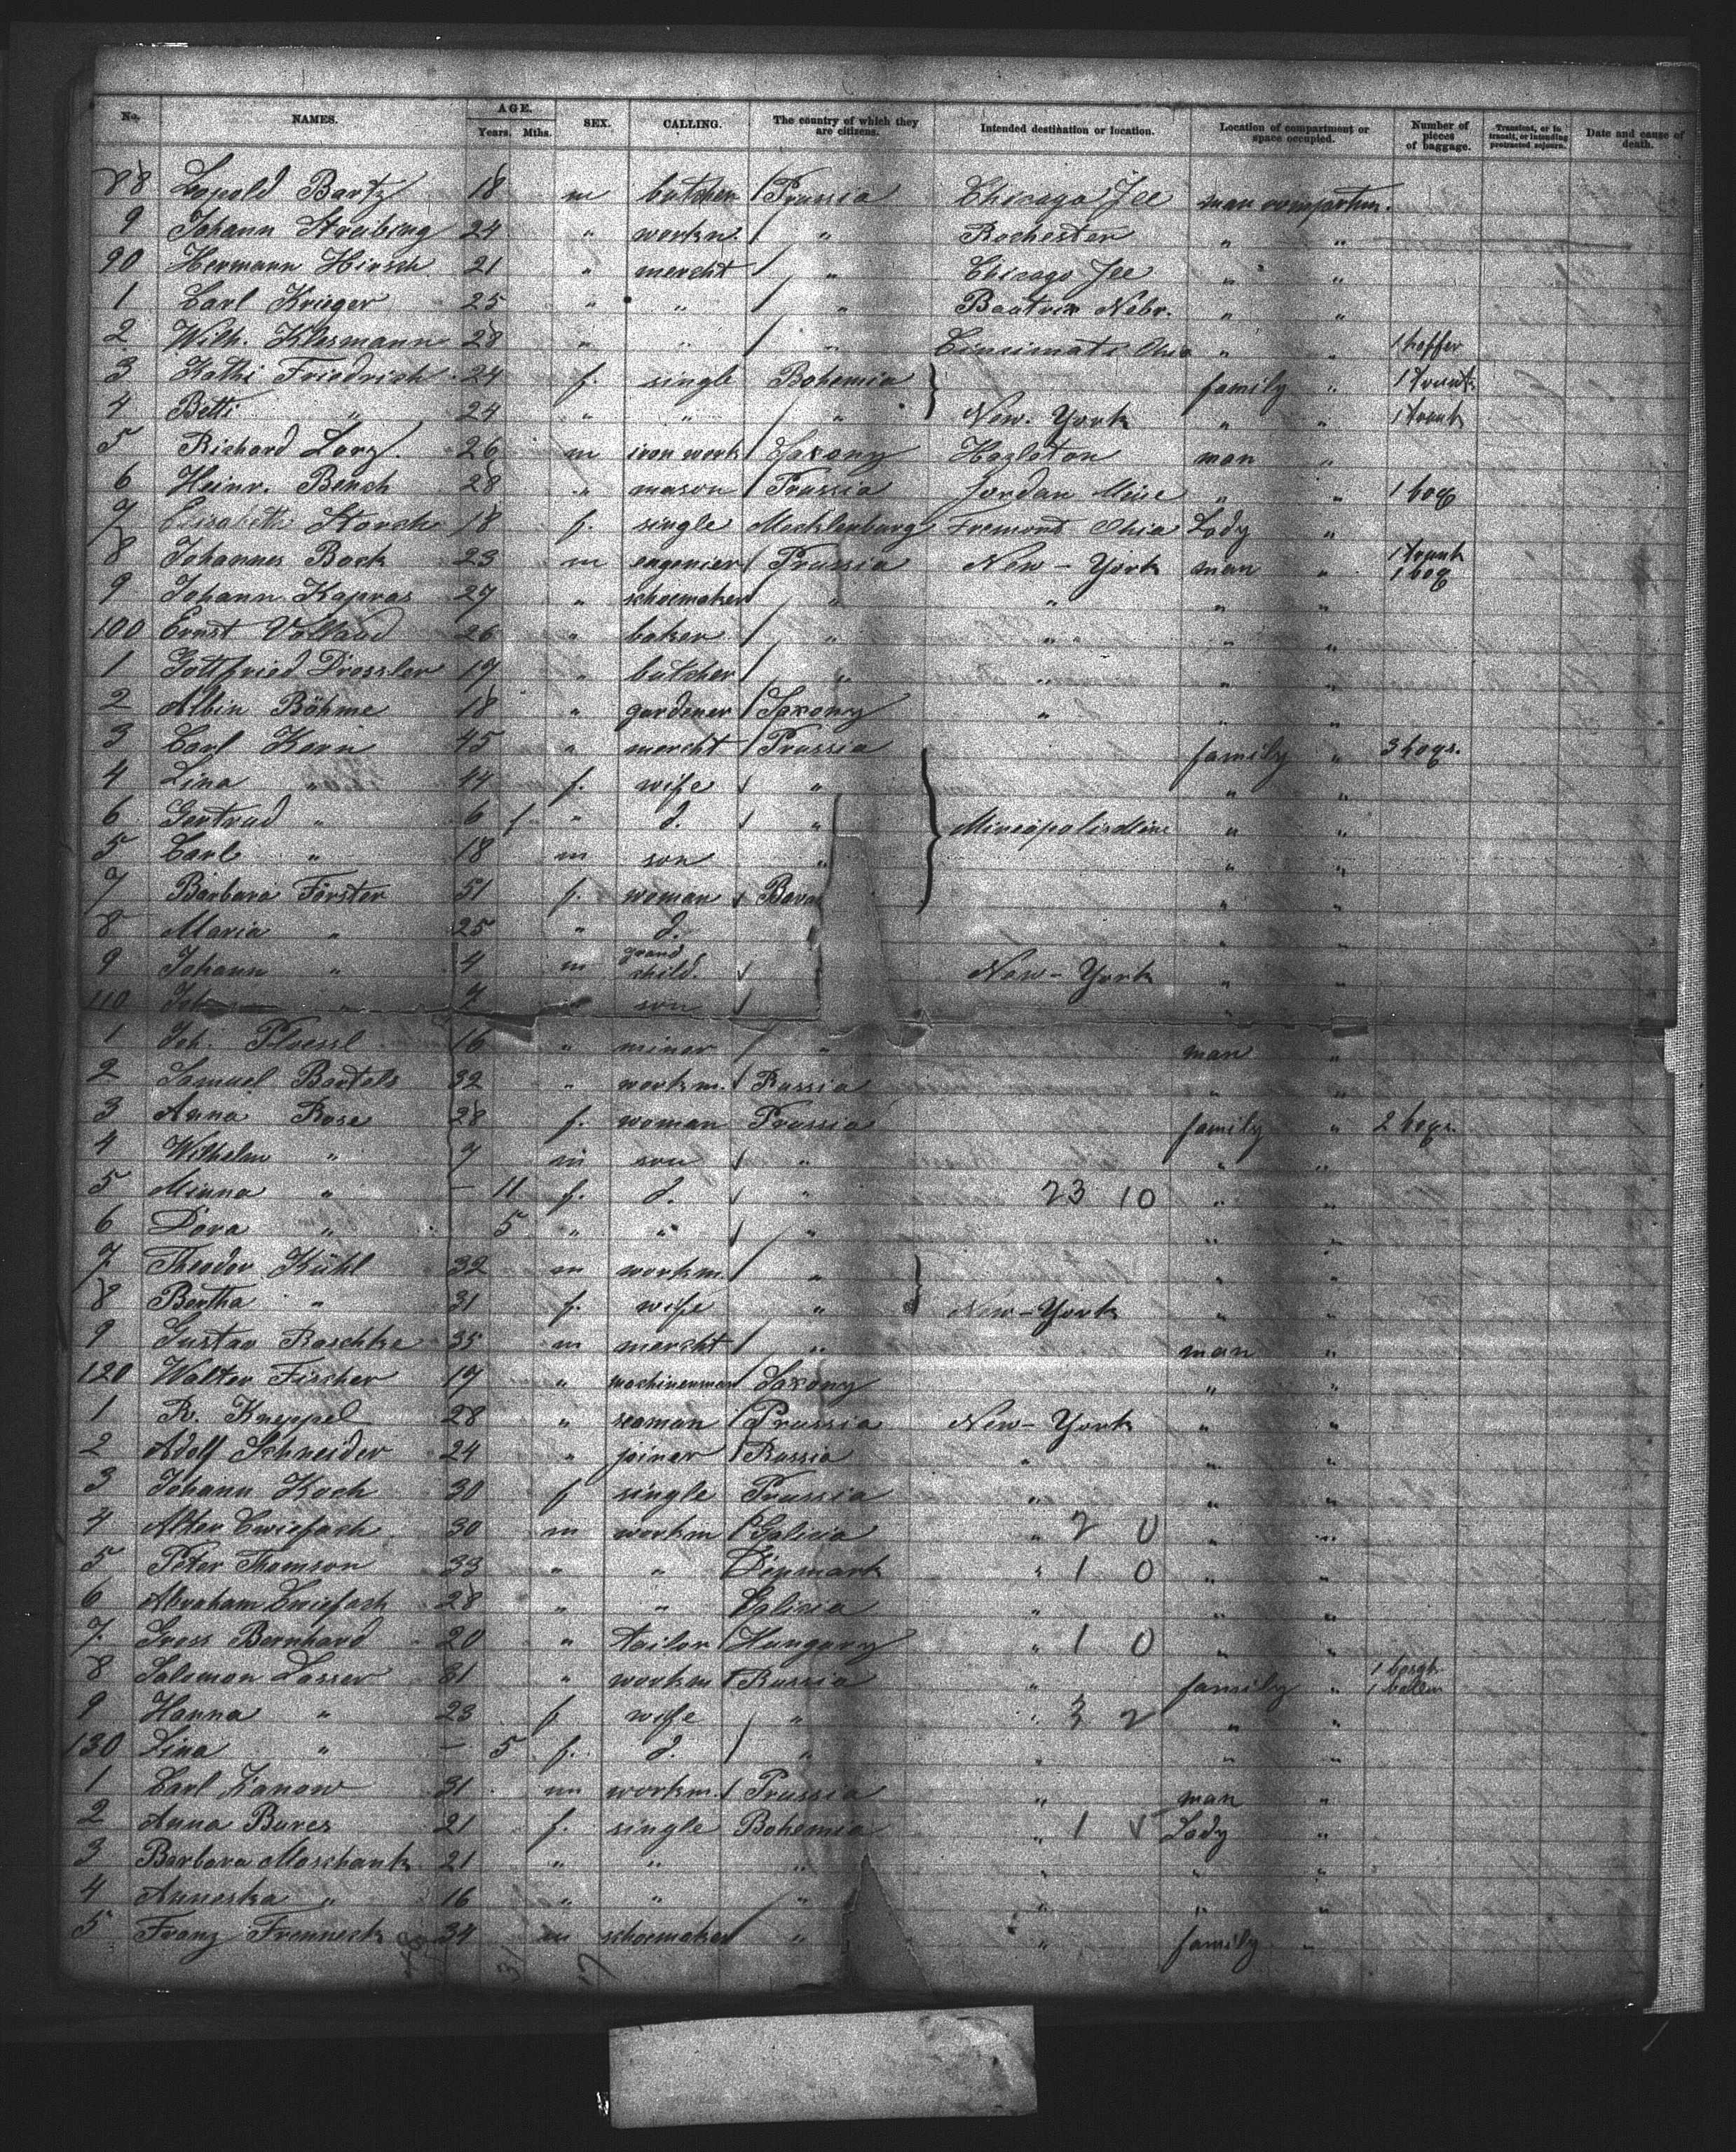 No. NAMES. AGE. Years. Mths. SEX. CALLING. The country of which they are citizens. Intended destination or location. Location of compartment or space occupied. Number of pieces of baggage. Transient, or in transit, or intending protracted sojourn. Date and cause of death.
88 Lepold Bartz 18 m butcher Prussia Chicago Jll man compartm.
9 Johann Streibing 24 " workm. " Rochester " "
90 Hermann Hirsch 21 " mercht " Chicago Jll " "
1 Carl Krieger 25 " " " Beatrix Nebr. " "
2 Wilh. Klesmann 28 " " " Cincimati Ohio " " 1 koffer
3 Kathi Friedrich 24 f. single Bohemia family " 1 trunk
4 Betti " 24 " " " New-York " " 1 trunk
5 Richard Lorz. 26 m iron work Saxony Hazleton man "
6 Heinr. Bench 28 " mason Prussia Jordan Mine " " 1 bag
7 Elisabeth Storch 18 f. single Mecklenburg Fremont Ohio Lady "
8 Johannes Bock 23 m engenier Prussia New-York man " 1 trunk 1 bag
9 Johann Kapras 27 " schoemaker " " " "
100 Ernst Volland 26 " baker " " " "
1 Gottfried Dressler 19 " butcher " " " "
2 Albin Böhme 18 " gardener Saxony " " "
3 Carl Kern 45 " mercht Prussia family " 3 bags.
4 Lina " 44 f. wife " " "
6 Gertrud " 6 f " d. " Mineapolis Mine " "
5 Carl " 18 m son " " "
7 Barbara Förster 51 f. woman Bava " "
8 Maria " 25 " d. " "
9 Johann " 4 m grand child. New-York " "
110 " 7 son "
1 Joh. Ploessl 16 " miner " man "
2 Samuel Bartels 32 " workm. Russia " "
3 Anna Rose 28 f. woman Prussia family " 2 bags.
4 Wilhelm " 7 m son " " "
5 Minna " - 11 f. d. " 23 10 " "
6 Dora " 5 " " " " "
7 Theodor Kühl 32 m workm. " " "
8 Bertha " 31 f. wife " New-York " "
9 Gustav Raschke 35 m mercht " man "
120 Walter Fischer 17 " machinenman Saxony " "
1 R. Kneppel 28 " seaman Prussia New-York " "
2 Adolf Schneider 24 " joiner Russia " " "
3 Johann Koch 30 f single Prussia " " "
4 Alter Cwiefach 30 m workm Galicia " 2 0 " "
5 Peter Thomson 33 " " Denmark " 1 0 " "
6 Abraham Cwiefach 28 " " Galicia " " "
7 Gross Bernhard 20 " tailor Hungary " 1 0 " "
8 Salomon Lasser 31 " workm Russia " family " 1
9 Hanna " 23 f wife " " 3 2 " "
130 Lina " - 5 f. d. " " " "
1 Carl Zanow 31 m workm. Prussia " man "
2 Anna Bures 21 f. single Bohemia " 1 Lady "
3 Barbara Moschank 21 " " " " " "
4 Anneska " 16 " " " " " "
5 Franz Frenneck 34 m schoemaker " " family "